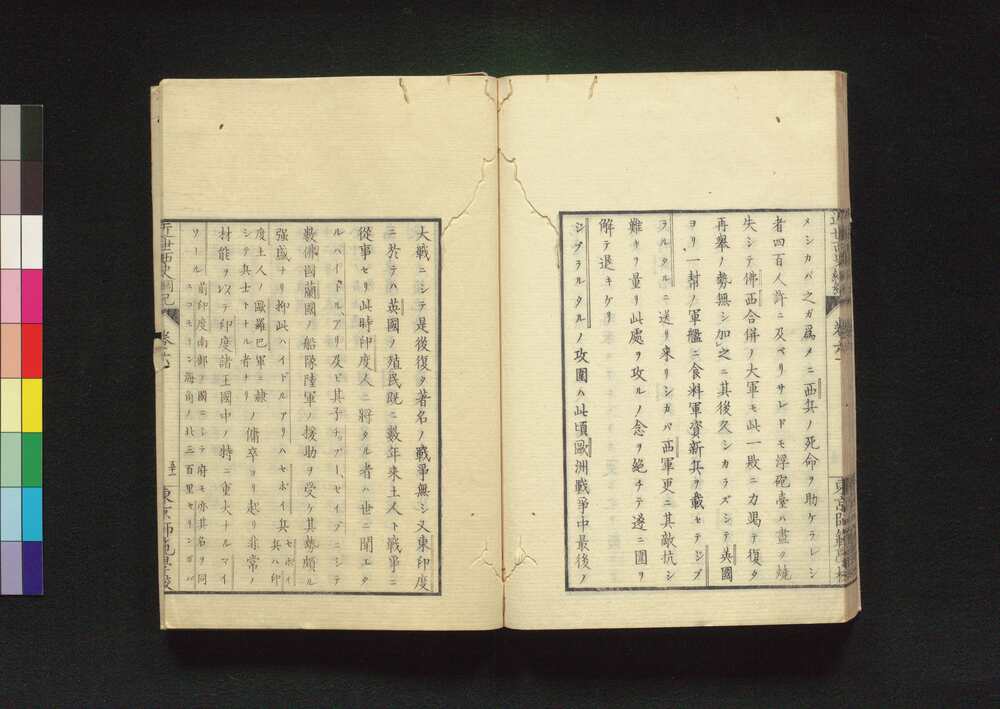 メシカバ之ガ爲メニ西兵ノ死命ヲ助ケラレシ
者四百人許ニ及ベリサレドモ浮砲臺ハ盡ク燒
失シテ佛西合併ノ大軍モ此一敗ニカ竭テ復タ
再擧ノ勢無シ加之ニ其後久シカラズシテ英國
ヨリ一幇ノ軍艦ニ食料軍資新兵ヲ載セテジブ
ラルタルニ送リ來リシカバ西軍更ニ其敵抗シ
難キヲ量リ此處ヲ攻ルノ念ヲ絶チテ遂ニ圍ヲ
解テ退キケリ
ジブラルタルノ攻圍ハ此頃歐洲戰爭中最後ノ
大戰ニシテ是後復タ著名ノ戰爭無シ又東印度
ニ於テハ英國ノ殖民既ニ數年来土人ト戰爭ニ
從事セリ此時印度人ニ將タル者ハ世ニ聞エタ
ルハイドルアリ及ビ其子チッブーセイブニシテ
數佛國蘭國ノ船隊陸軍ノ援助ヲ受ケ其勢頗ル
强盛ナリ抑此ハイドルアリハセポイ兵 セポイ兵ハ印
度土人ノ歐羅巴軍ニ隷シテ兵士トナル者ナリ ノ傭卒ヨリ起リ非常ノ
材能ヲ以テ印度諸王國中ノ特ニ重大ナルマイ
ソール 前印度南部ノ國ニシテ府モ亦其名ヲ同
近世西史綱紀 卷六
東京師範學校